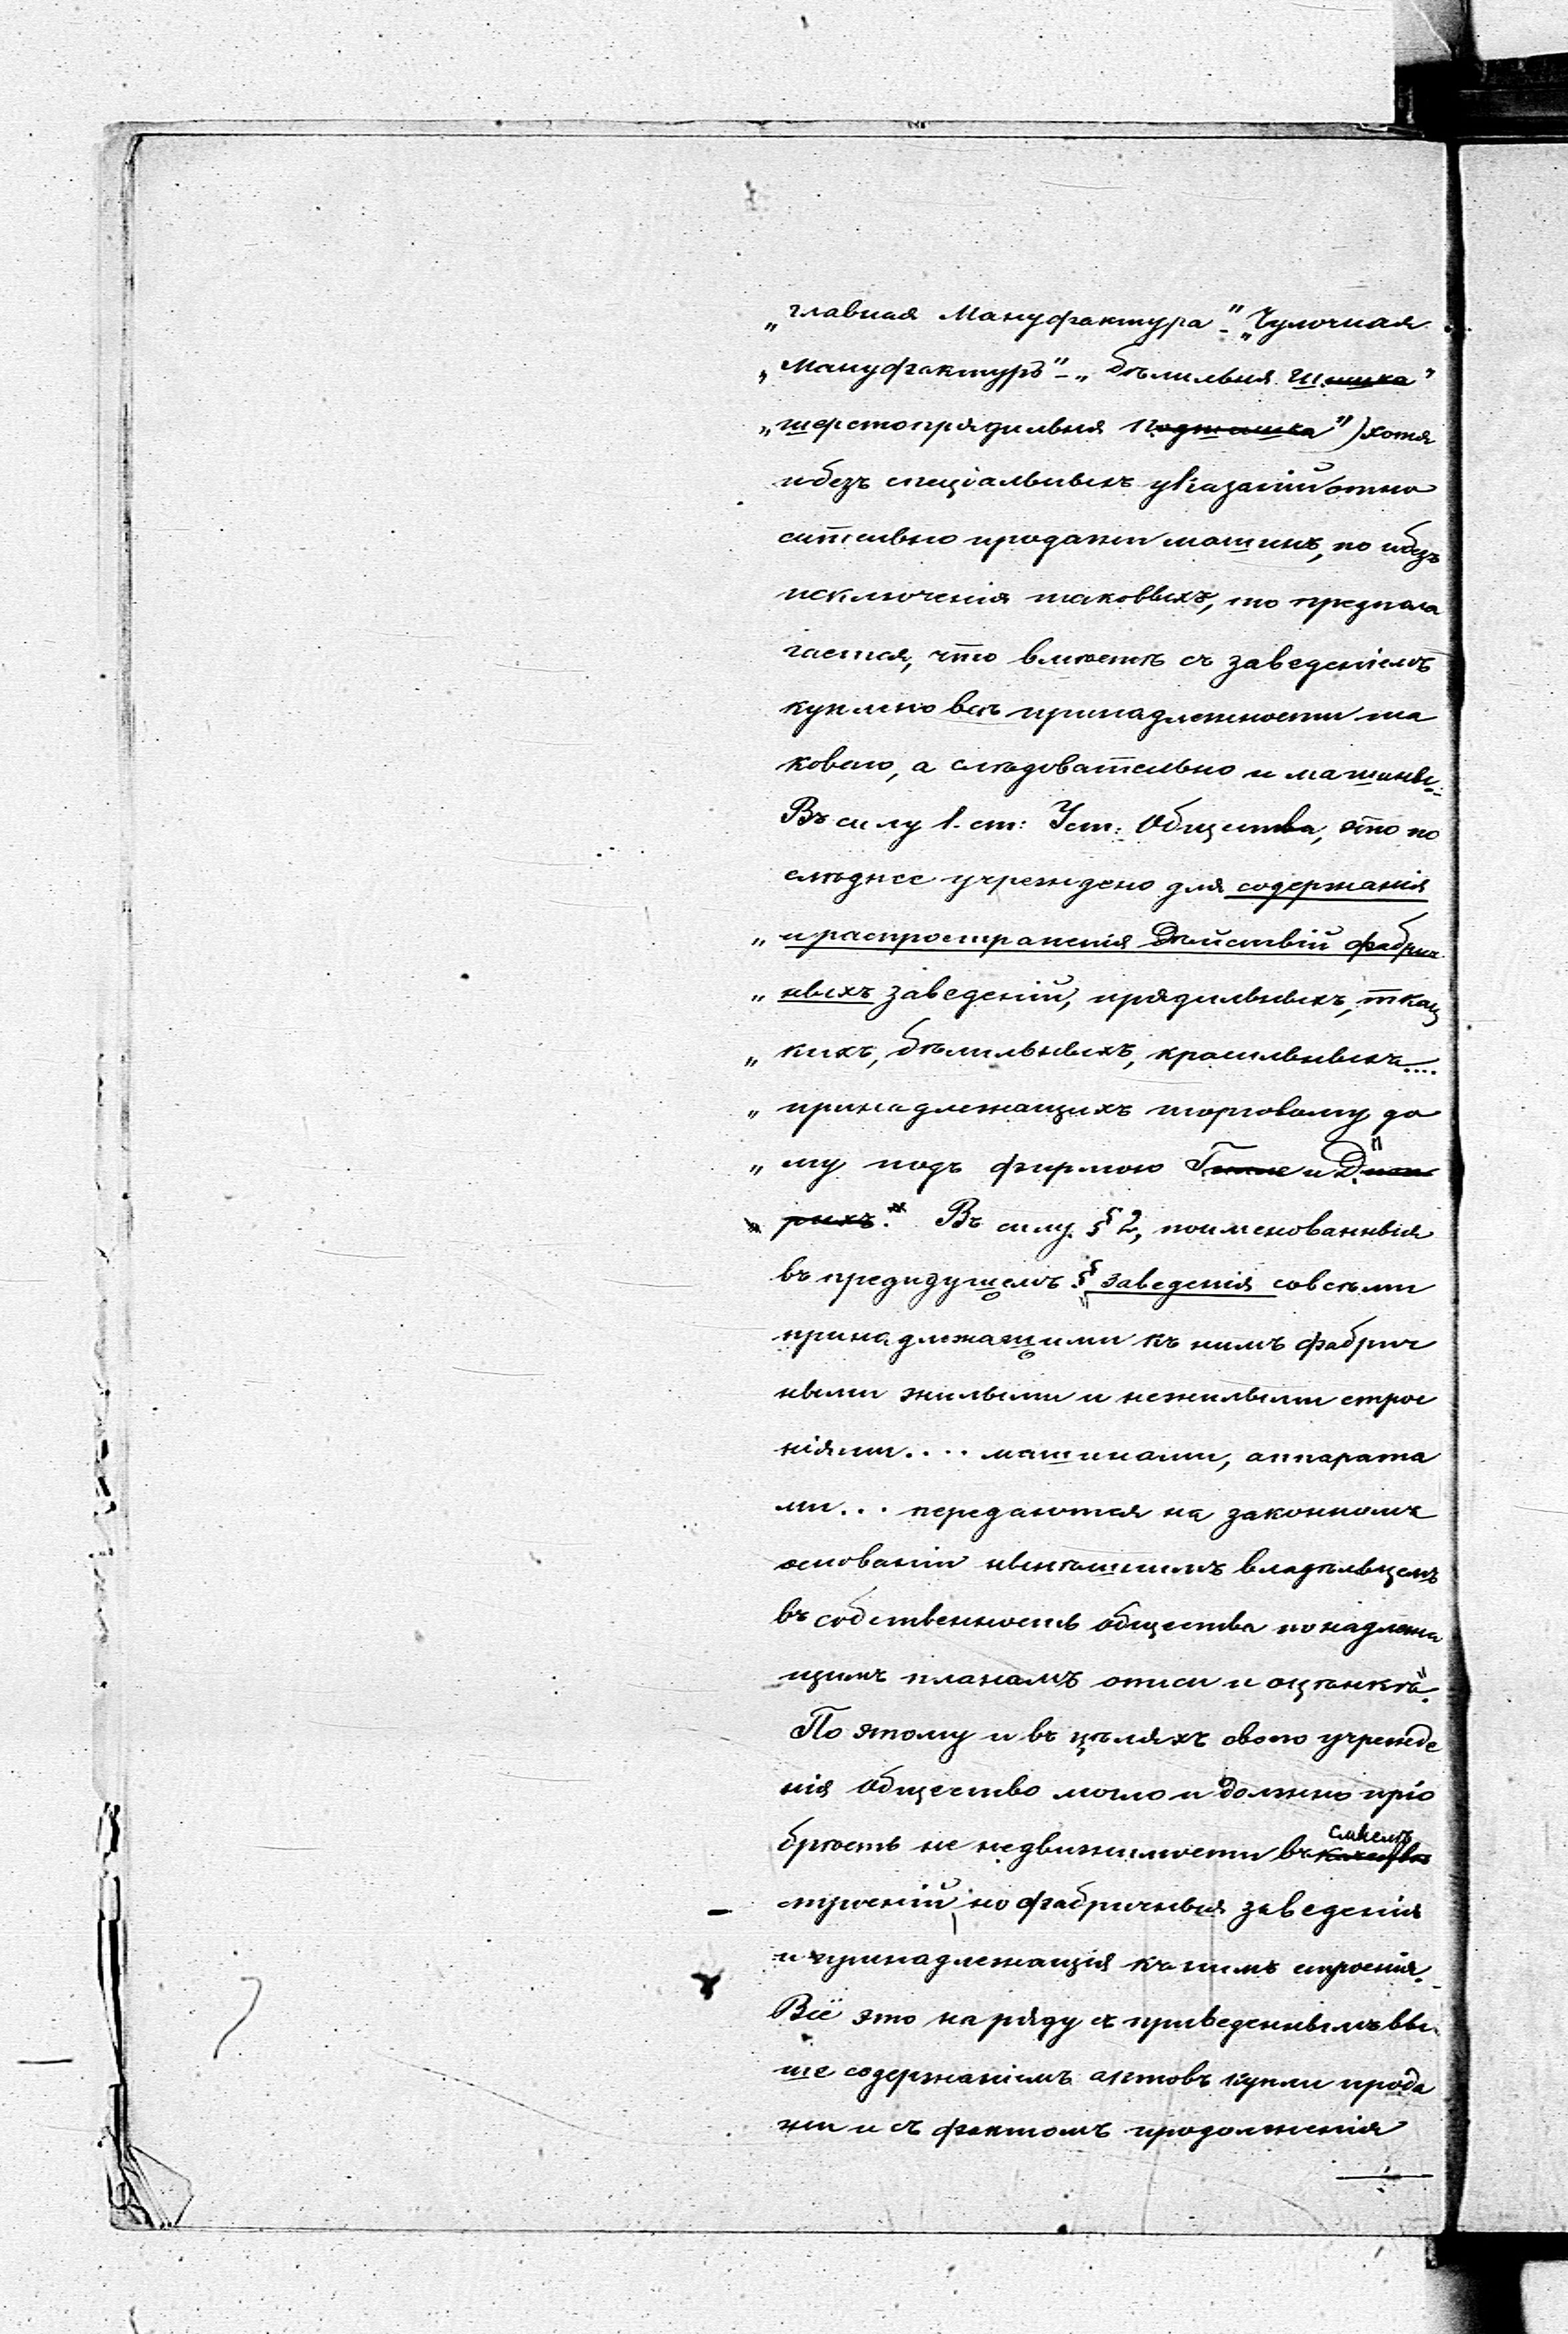 „главная Мануфактура"-„Чулочная
„Мануфактуръ"-„бѣлильня Шишка"
„шерстопрядильня Подтишка") хотя
и безъ спеціальныхъ указаній отно
сительно продажи машинъ, но и безъ
исключенія таковыхъ, то предпола
гается, что вмѣстѣ съ заведеніемъ
куплено всѣ принадлежности та
коваго, а слѣдовательно и машины.
Въ силу 1. ст: Уст: Общества, это по
слѣднее учреждено для содержанія
„ и распространенія Дѣйствій фабрич
„ ныхъ заведеній, прядильныхъ, ткац
„ кихъ, бѣлильныхъ, красильныхъ....
„ принадлежащихъ торговому до
„ му подъ фирмою Гилле и Дит
„ рихъ." Въ силу § 2, поименованныя
въ предидущемъ § „заведенія со всѣми
принадлежащими къ нимъ фабрич
ными жилыми и нежилыми строе
ніями.... машинами, аппарата
ми... передаются на законномъ
основаніи нынѣшнимъ владѣльцемъ
въ собственность общества по надлежа
щимъ планамъ описи и оцѣнкѣ".
По этому и въ цѣляхъ своего учрежде
нія Общество могло и должно пріо
брѣсть не недвижимости въ качествѣ смыслѣ
строеній, но фабричныя заведенія
и принадлежащія къ нимъ строенія.
Всё это на ряду съ приведеннымъ вы
ше содержаніемъ актовъ купли прода
жи и съ фактомъ продолженія